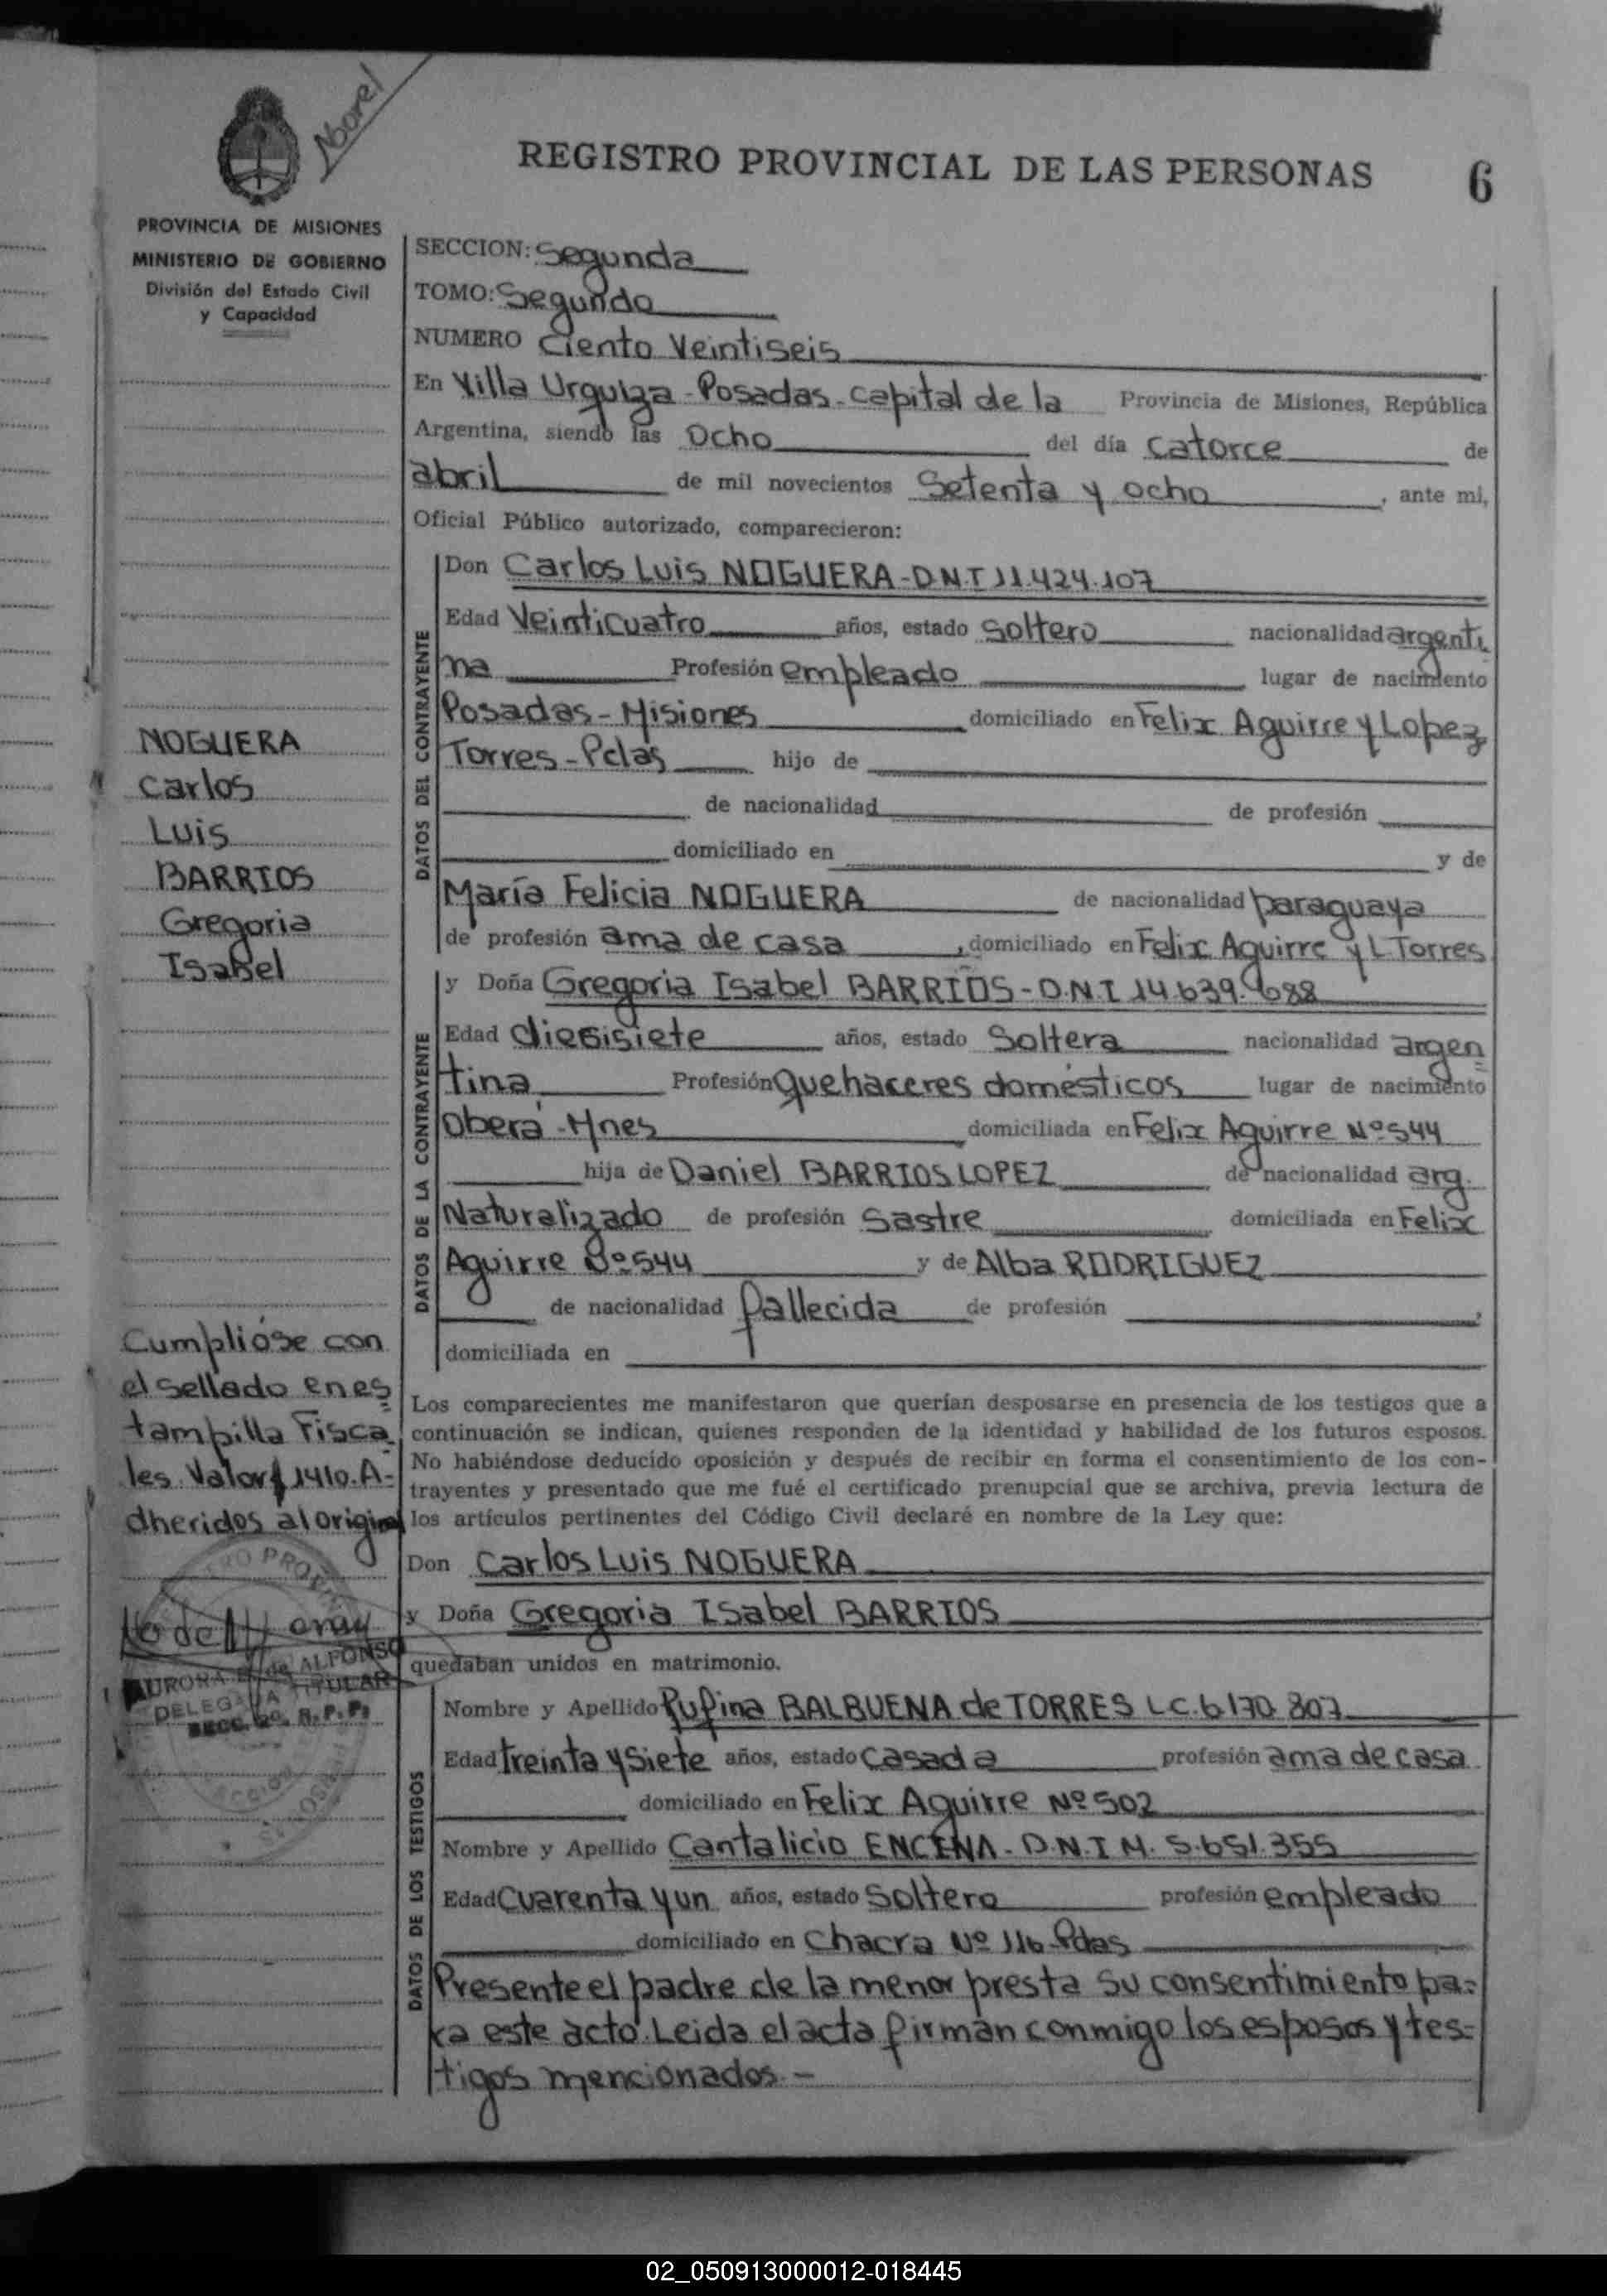 REGISTRO PROVINCIAL DE LAS PERSONAS 6
PROVINCIA DE MISIONES
MINISTERIO DE GOBIERNO
División del Estado Civil
y Capacidad
SECCION: Segunda
TOMO: Segundo
NUMERO Ciento Veintiseis
En Villa Urquiza - Posadas - Capital de la Provincia de Misiones, República
Argentina, siendo las Ocho del día Catorce de
abril de mil novecientos Setenta y ocho, ante mi,
Oficial Público autorizado, comparecieron:
DATOS DEL CONTRAYENTE
Don Carlos Luis NOGUERA - D.N.I 11.424.107
Edad Veinticuatro años, estado Soltero nacionalidad argenti
na Profesión empleado lugar de nacimiento
Posadas - Misiones domiciliado en Felix Aguirre y Lopez
Torres - Pdas hijo de
de nacionalidad de profesión
domiciliado en y de
María Felicia NOGUERA de nacionalidad paraguaya
de profesión ama de casa, domiciliado en Felix Aguirre y L Torres
DATOS DE LA CONTRAYENTE
y Doña Gregoria Isabel BARRIOS - D.N.I 14.639.688
Edad diesisiete años, estado Soltera nacionalidad argen
tina Profesión Quehaceres domésticos lugar de nacimiento
Oberá - Mnes domiciliada en Felix Aguirre Nº 544
hija de Daniel BARRIOS LOPEZ de nacionalidad arg.
Naturalizado de profesión Sastre domiciliada en Felix
Aguirre Nº 544 y de Alba RODRIGUEZ
de nacionalidad fallecida de profesión
domiciliada en
Los comparecientes me manifestaron que querían desposarse en presencia de los testigos que a
continuación se indican, quienes responden de la identidad y habilidad de los futuros esposos.
No habiéndose deducido oposición y después de recibir en forma el consentimiento de los con-
trayentes y presentado que me fué el certificado prenupcial que se archiva, previa lectura de
los artículos pertinentes del Código Civil declaré en nombre de la Ley que:
Don Carlos Luis NOGUERA
y Doña Gregoria Isabel BARRIOS
quedaban unidos en matrimonio.
DATOS DE LOS TESTIGOS
Nombre y Apellido Rufina BALBUENA de TORRES LC. 6.170.807
Edad treinta y Siete años, estado Casada profesión ama de casa
domiciliado en Felix Aguirre Nº 502
Nombre y Apellido Cantalicio ENCENA - D.N.I M. 5.651.355
Edad Cuarenta y un años, estado Soltero profesión empleado
domiciliado en Chacra Nº 116 - Pdas
Presente el padre de la menor presta su consentimiento pa-
ra este acto. Leida el acta firman conmigo los esposos y tes-
tigos mencionados. -
NOGUERA
Carlos
Luis
BARRIOS
Gregoria
Isabel
Cumplióse con
el sellado en es
tampilla Fisca
les Valor $ 1410. A-
dheridos al original
AURORA de ALFONSO
DELEGADA TITULAR
SECC. 2º. R. P. P.
02_050913000012-018445